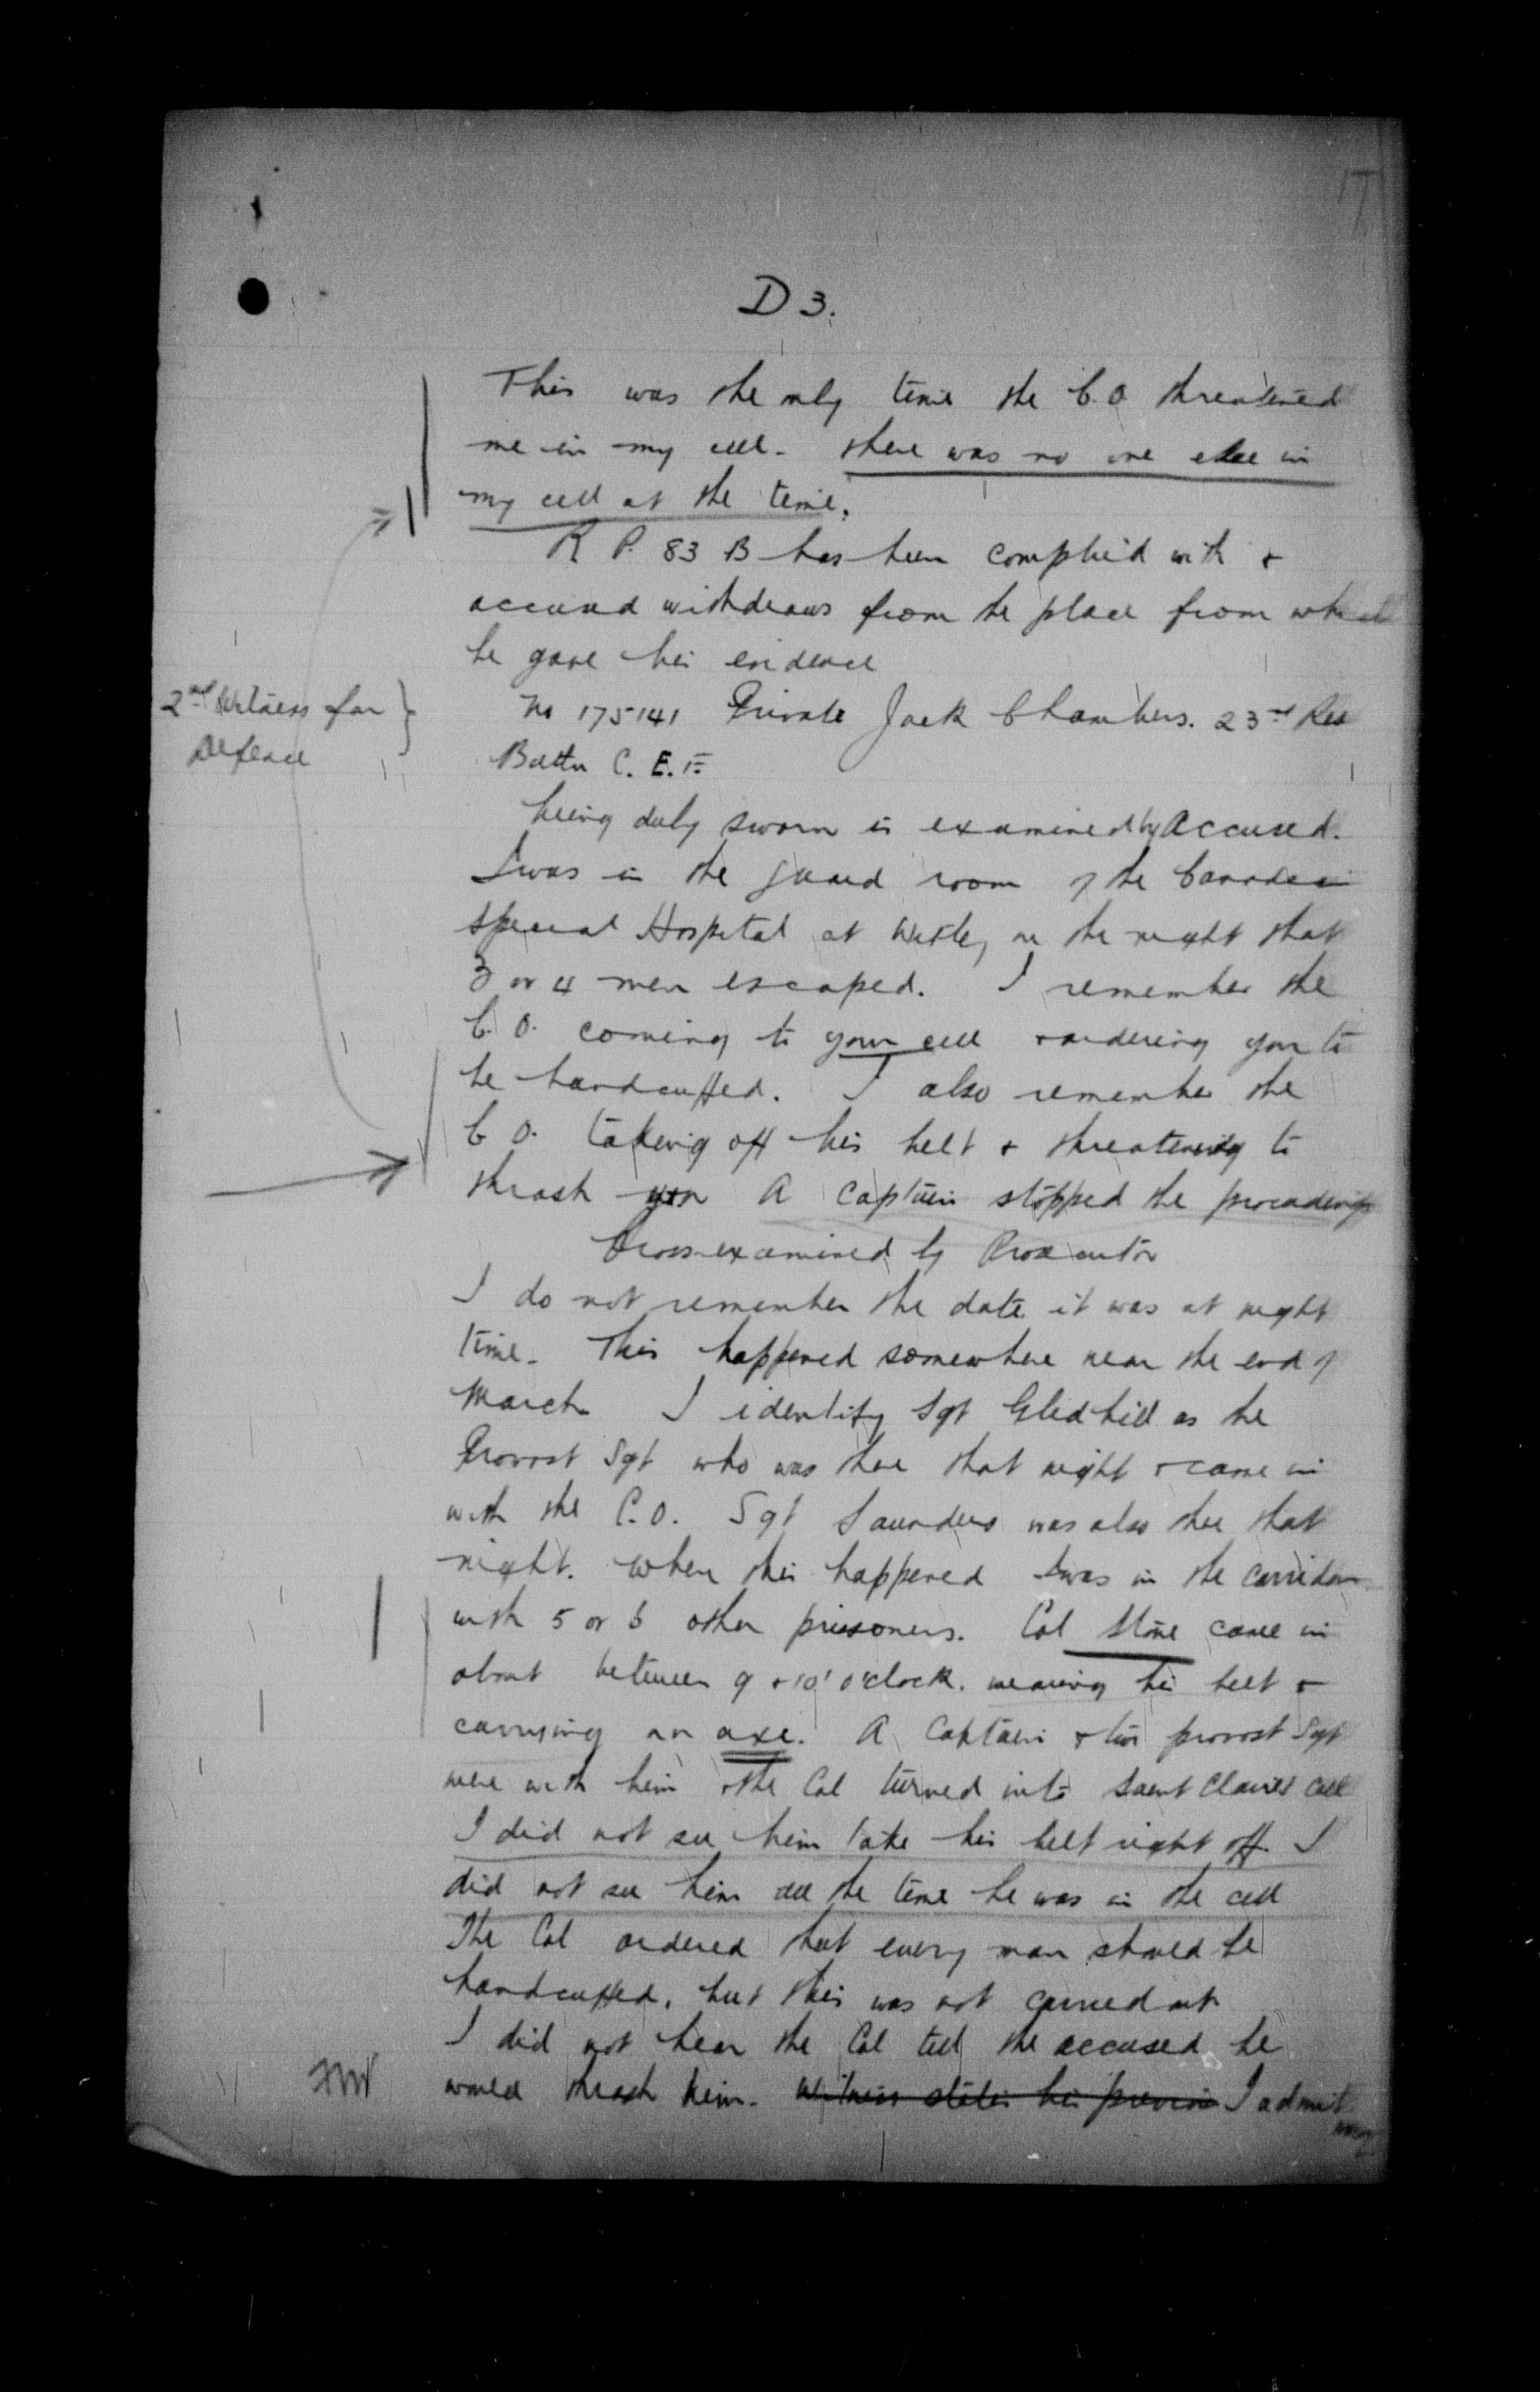 17
D 3.
This was the only time the C.O threatened
me in my cell. there was no one else in
my cell at the time.
R P. 83 B has been complied with &
accused withdraws from the place from which
he gave his evidence
2nd Witness for
Defence
No 175141 Private Jack Chambers. 23rd Res
Battn C. E. F.
being duly sworn is examined by Accused.
I was in the guard room of the Canadian
Special Hospital at Witley on the night that
3 or 4 men escaped. I remember the
C. O. coming to your cell & ordering you to
be handcuffed. I also remember the
C O. taking off his belt & threatening to
thrash you A Captain stopped the proceedings
Cross-examined by Prosecutor
I do not remember the date it was at night
time. This happened somewhere near the end of
March I identify Sgt Gledhill as the
Provost Sgt who was there that night & came in
with the C.O. Sgt Saunders was also there that
night. When this happened I was in the corridor
with 5 or 6 other prisoners. Col Stone came in
about between 9 & 10' o'clock. wearing his belt &
carrying an axe. A Captain & two provost Sgt
were with him & the Col turned into Saent Claires cell
I did not see him take his belt right off. I
did not see him all the time he was in the cell
The Col ordered that every man should be
handcuffed, but this was not carried out
I did not hear the Col tell the accused he
would thrash him. Witness states his previous I admit